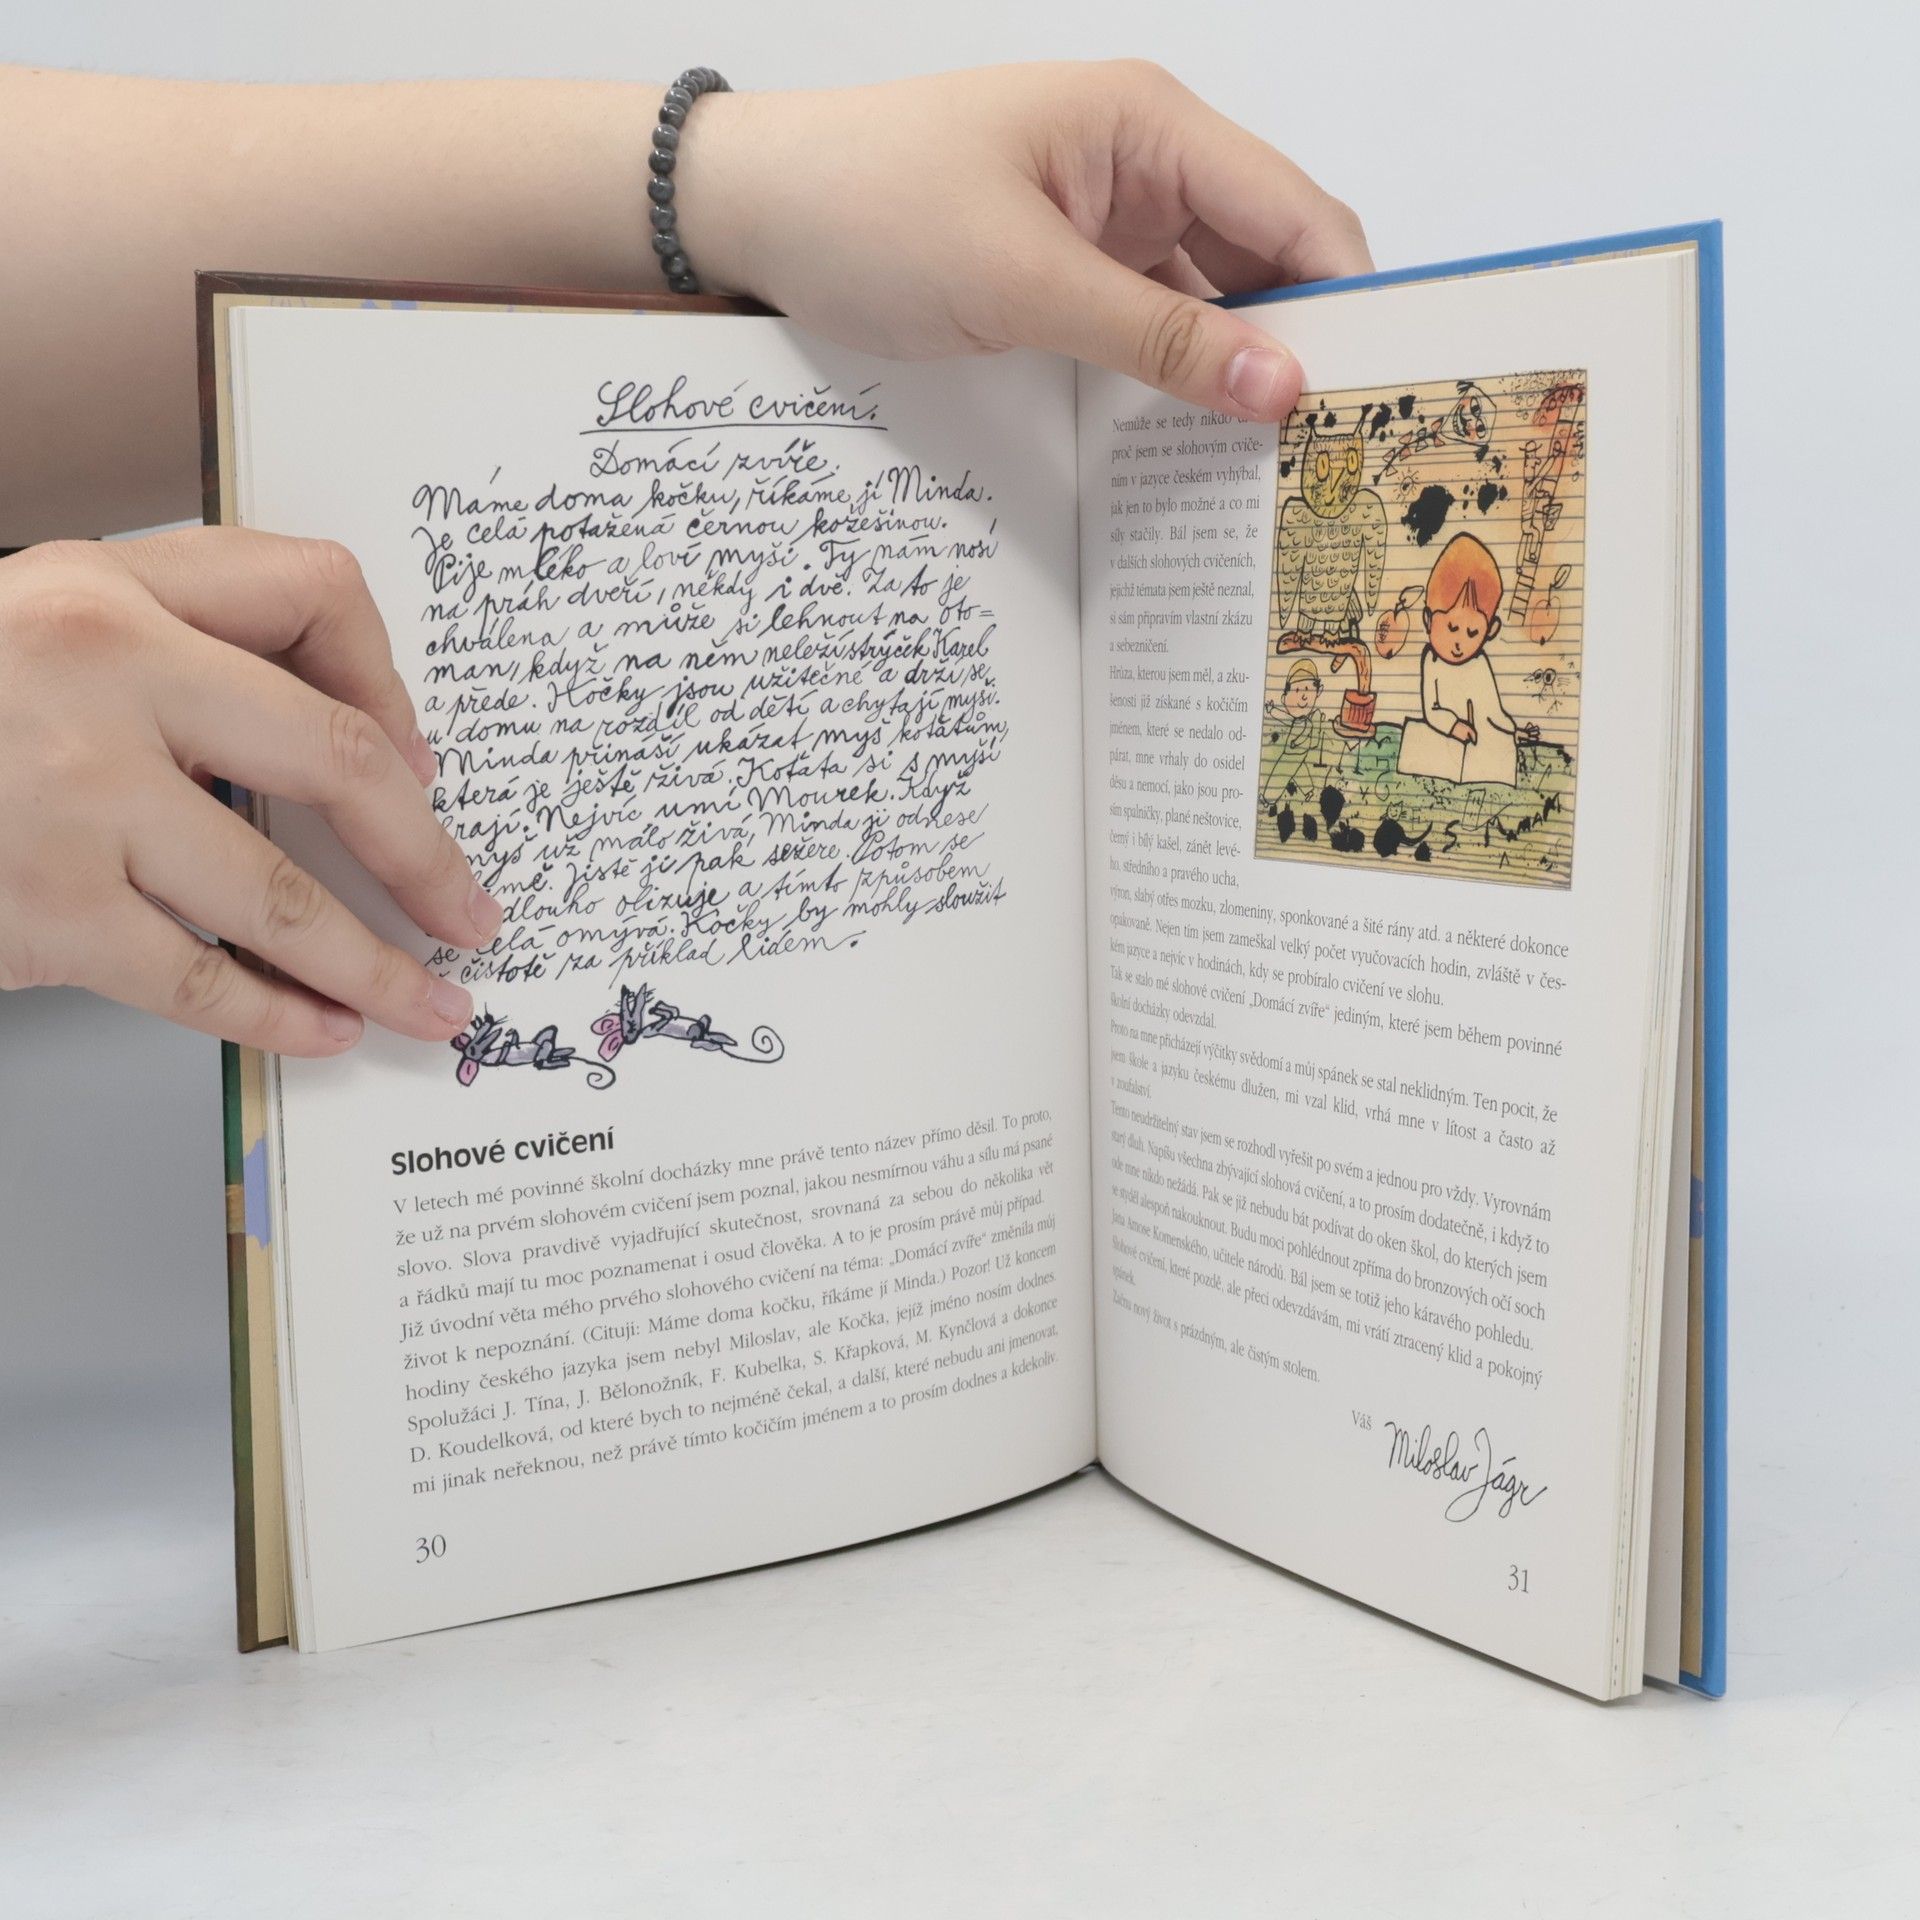 Slohové cvičení.
Domácí zvíře.
Máme doma kočku, říkáme jí Minda.
Je celá potažená černou kožešinou.
Pije mléko a loví myši. Ty nám nosí
na práh dveří, někdy i dvě. Za to je
chválena a může si lehnout na oto=
man, když na něm neleží strýček Karel
a přede. Kočky jsou užitečné a drží se
u domu na rozdíl od dětí a chytají myši.
Minda přináší ukázat myš koťatům,
která je ještě živá. Koťata si s myší
hrají. Nejvíc umí Mourek. Když
myš už málo živá, Minda ji odnese
Jistě ji pak sežere. Potom se
dlouho olizuje a tímto způsobem
se celá omývá. Kočky by mohly sloužit
čistotě za příklad lidem.
Slohové cvičení
V letech mé povinné školní docházky mne právě tento název přímo děsil. To proto,
že už na prvém slohovém cvičení jsem poznal, jakou nesmírnou váhu a sílu má psané
slovo. Slova pravdivě vyjadřující skutečnost, srovnaná za sebou do několika vět
a řádků mají tu moc poznamenat i osud člověka. A to je prosím právě můj případ.
Již úvodní věta mého prvého slohového cvičení na téma: „Domácí zvíře“ změnila můj
život k nepoznání. (Cituji: Máme doma kočku, říkáme jí Minda.) Pozor! Už koncem
hodiny českého jazyka jsem nebyl Miloslav, ale Kočka, jejíž jméno nosím dodnes.
Spolužáci J. Tína, J. Bělonožník, F. Kubelka, S. Křapková, M. Kynčlová a dokonce
D. Koudelková, od které bych to nejméně čekal, a další, které nebudu ani jmenovat,
mi jinak neřeknou, než právě tímto kočičím jménem a to prosím dodnes a kdekoliv.
30
Nemůže se tedy nikdo
proč jsem se slohovým cviče-
ním v jazyce českém vyhýbal,
jak jen to bylo možné a co mi
síly stačily. Bál jsem se, že
v dalších slohových cvičeních,
jejichž témata jsem ještě neznal,
si sám připravím vlastní zkázu
a sebezničení.
Hrůza, kterou jsem měl, a zku-
šenosti již získané s kočičím
jménem, které se nedalo od-
párat, mne vrhaly do osidel
děsu a nemocí, jako jsou pro-
sím spalničky, plané neštovice,
černý i bílý kašel, zánět levé-
ho, středního a pravého ucha,
výron, slabý otřes mozku, zlomeniny, sponkované a šité rány atd. a některé dokonce
opakovaně. Nejen tím jsem zameškal velký počet vyučovacích hodin, zvláště v čes-
kém jazyce a nejvíc v hodinách, kdy se probíralo cvičení ve slohu.
Tak se stalo mé slohové cvičení „Domácí zvíře“ jediným, které jsem během povinné
školní docházky odevzdal.
Proto na mne přicházejí výčitky svědomí a můj spánek se stal neklidným. Ten pocit, že
jsem škole a jazyku českému dlužen, mi vzal klid, vrhá mne v lítost a často až
v zoufalství.
Tento neudržitelný stav jsem se rozhodl vyřešit po svém a jednou pro vždy. Vyrovnám
starý dluh. Napíšu všechna zbývající slohová cvičení, a to prosím dodatečně, i když to
ode mne nikdo nežádá. Pak se již nebudu bát podívat do oken škol, do kterých jsem
se styděl alespoň nakouknout. Budu moci pohlédnout zpříma do bronzových očí soch
Jana Amose Komenského, učitele národů. Bál jsem se totiž jeho káravého pohledu.
Slohové cvičení, které pozdě, ale přeci odevzdávám, mi vrátí ztracený klid a pokojný
spánek.
Začnu nový život s prázdným, ale čistým stolem.
Váš
Miloslav Jágr
31